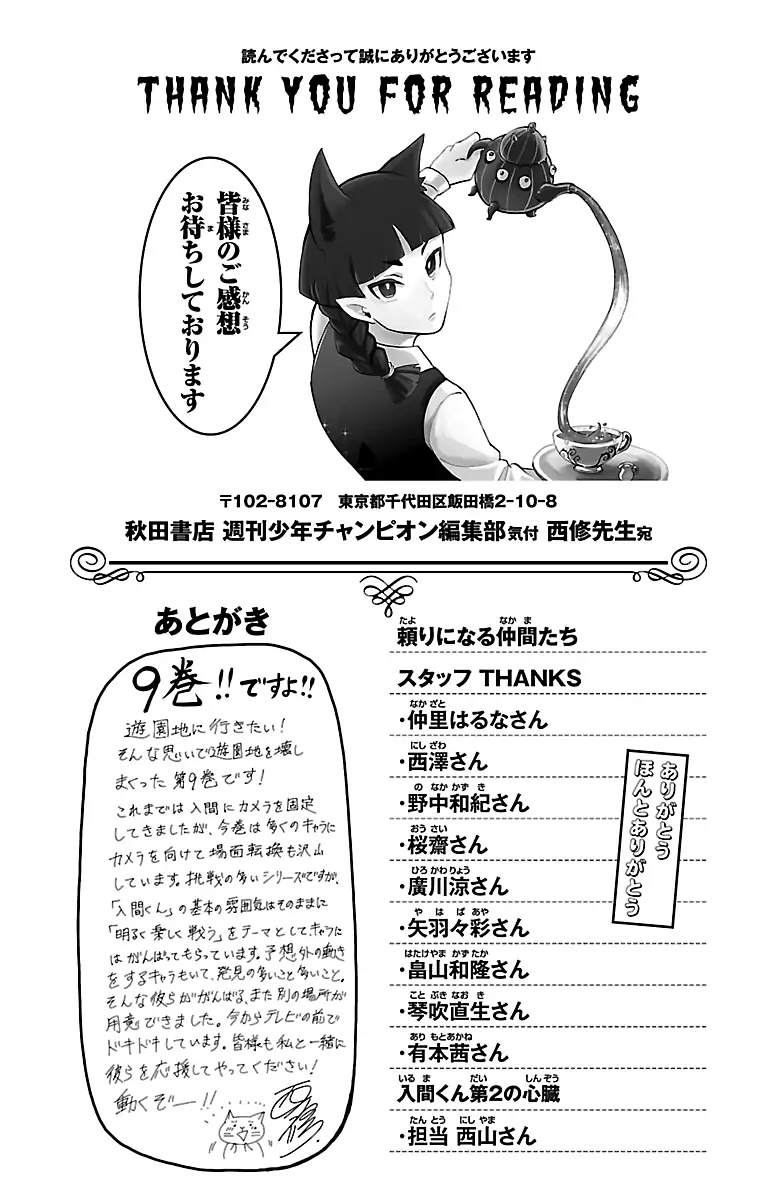 読んでくださって誠にありがとうございます
THANK YOU FOR READING
皆様のご感想
お待ちしております
〒102-8107 東京都千代田区飯田橋2-10-8
秋田書店 週刊少年チャンピオン編集部気付 西修先生宛
あとがき
9巻!!ですよ!!
遊園地に行きたい!
そんな思いで遊園地を壊し
まくった第9巻です!
これまでは入間にカメラを固定
してきましたが、今巻は多くのキャラに
カメラを向けて場面転換も沢山
しています。挑戦の多いシリーズですが、
「入間くん」の基本の雰囲気はそのままに
「明るく楽しく戦う」をテーマとしてキャラに
はがんばってもらっています。予想外の動き
をするキャラもいて、発見の多いこと多いこと。
そんな彼らががんばる、また別の場所が
用意できました。今からテレビの前で
ドキドキしています。皆様も私と一緒に
彼らを応援してやってください!
動くぞー!!
西修
頼りになる仲間たち
スタッフ THANKS
・仲里はるなさん
・西澤さん
・野中和紀さん
・桜齋さん
・廣川涼さん
・矢羽々彩さん
・畠山和隆さん
・琴吹直生さん
・有本茜さん
入間くん第2の心臓
・担当 西山さん
ありがとう
ほんとありがとう